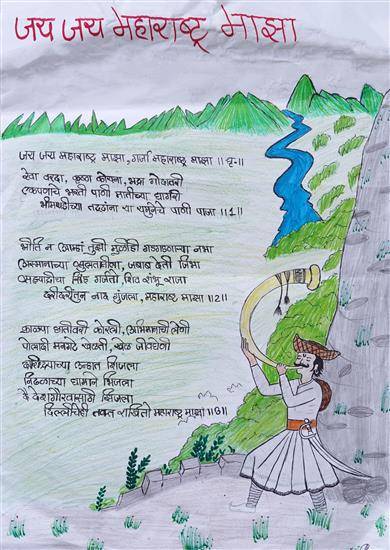 जय जय महाराष्ट्र माझा
जय जय महाराष्ट्र माझा, गर्जा महाराष्ट्र माझा ॥ धृ ॥
रेवा वरदा, कृष्णा कोयना, भद्रा गोदावरी
एकपणाचे भरती पाणी मातीच्या घागरी
भीमथडीच्या तट्टांना या यमुनेचे पाणी पाजा ॥1॥
भीति न आम्हां तुझी मुळीही गडगडणाऱ्या नभा
अस्मानाच्या सुलतानीला, जवाब देती जिभा
सह्याद्रीचा सिंह गर्जतो, शिव शंभू राजा
दरीदरीतून नाद गुंजला, महाराष्ट्र माझा ॥2॥
काळ्या छातीवरी कोरली, अभिमानाची लेणी
पोलादी मनगटे खेळती, खेळ जीवघेणी
दारिद्र्याच्या उन्हात शिजला
निढळाच्या घामाने भिजला
देशगौरवासाठी झिजला
दिल्लीचेही तख्त राखितो महाराष्ट्र माझा ॥3॥